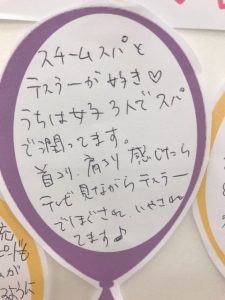 スチームスパと
テスラーが好き♡
うちは女子3人でスパ
で潤ってます。
首コリ、肩コリ感じたら
テレビ見ながらテスラー
でほぐされ、いやされ
てます♪